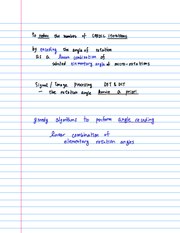 To reduce the number of CORDIC iterations
by encoding the angle of rotation
as a linear combination of
selected elementary angle of micro-rotations
Signal / Image Processing DFT & DCT
- the rotation angle known a prior
greedy algorithms to perform angle recoding
linear combination of
elementary rotation angles